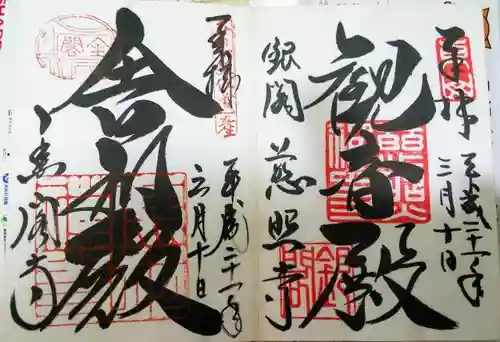 奉拝
平成二十一年
三月十日
観音殿
銀閣慈照寺
奉拝
平成二十一年
三月十日
舎利殿
金閣寺